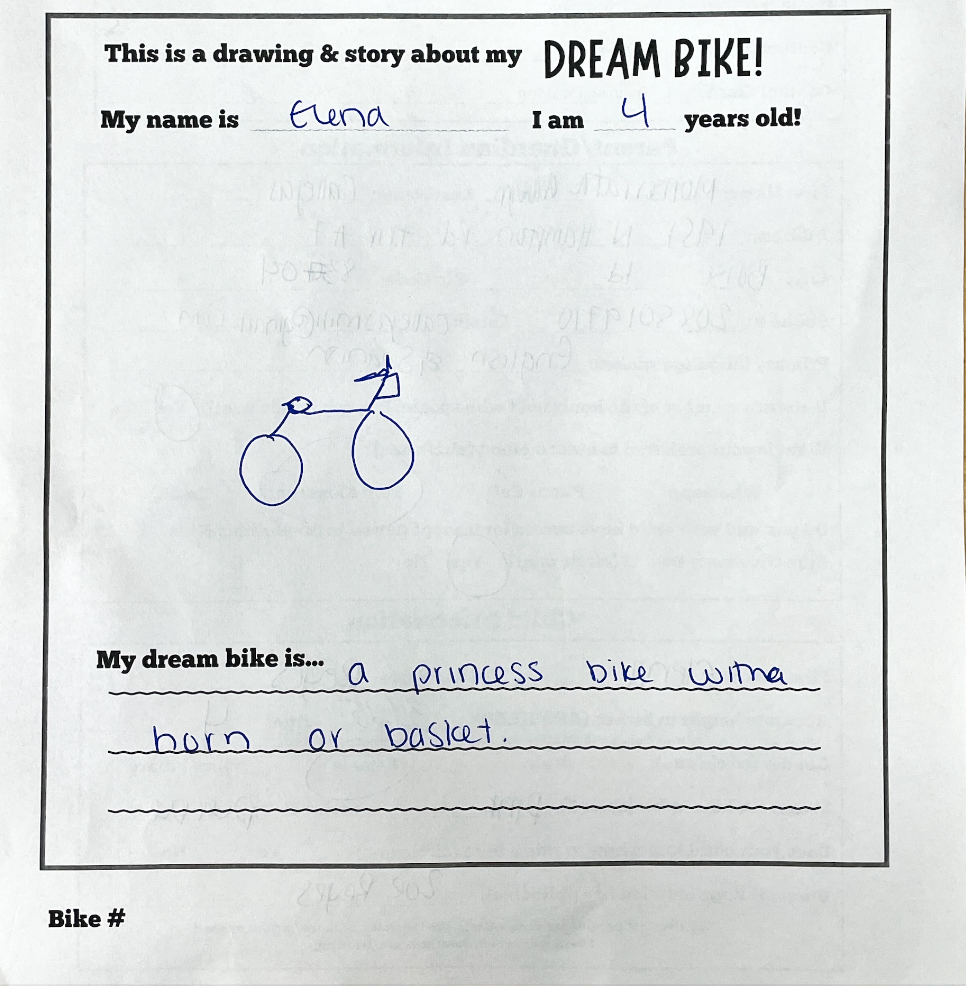 This is a drawing & story about my DREAM BIKE!
My name is Elena I am 4 years old!
My dream bike is... a princess bike with a
horn or basket.
Bike #